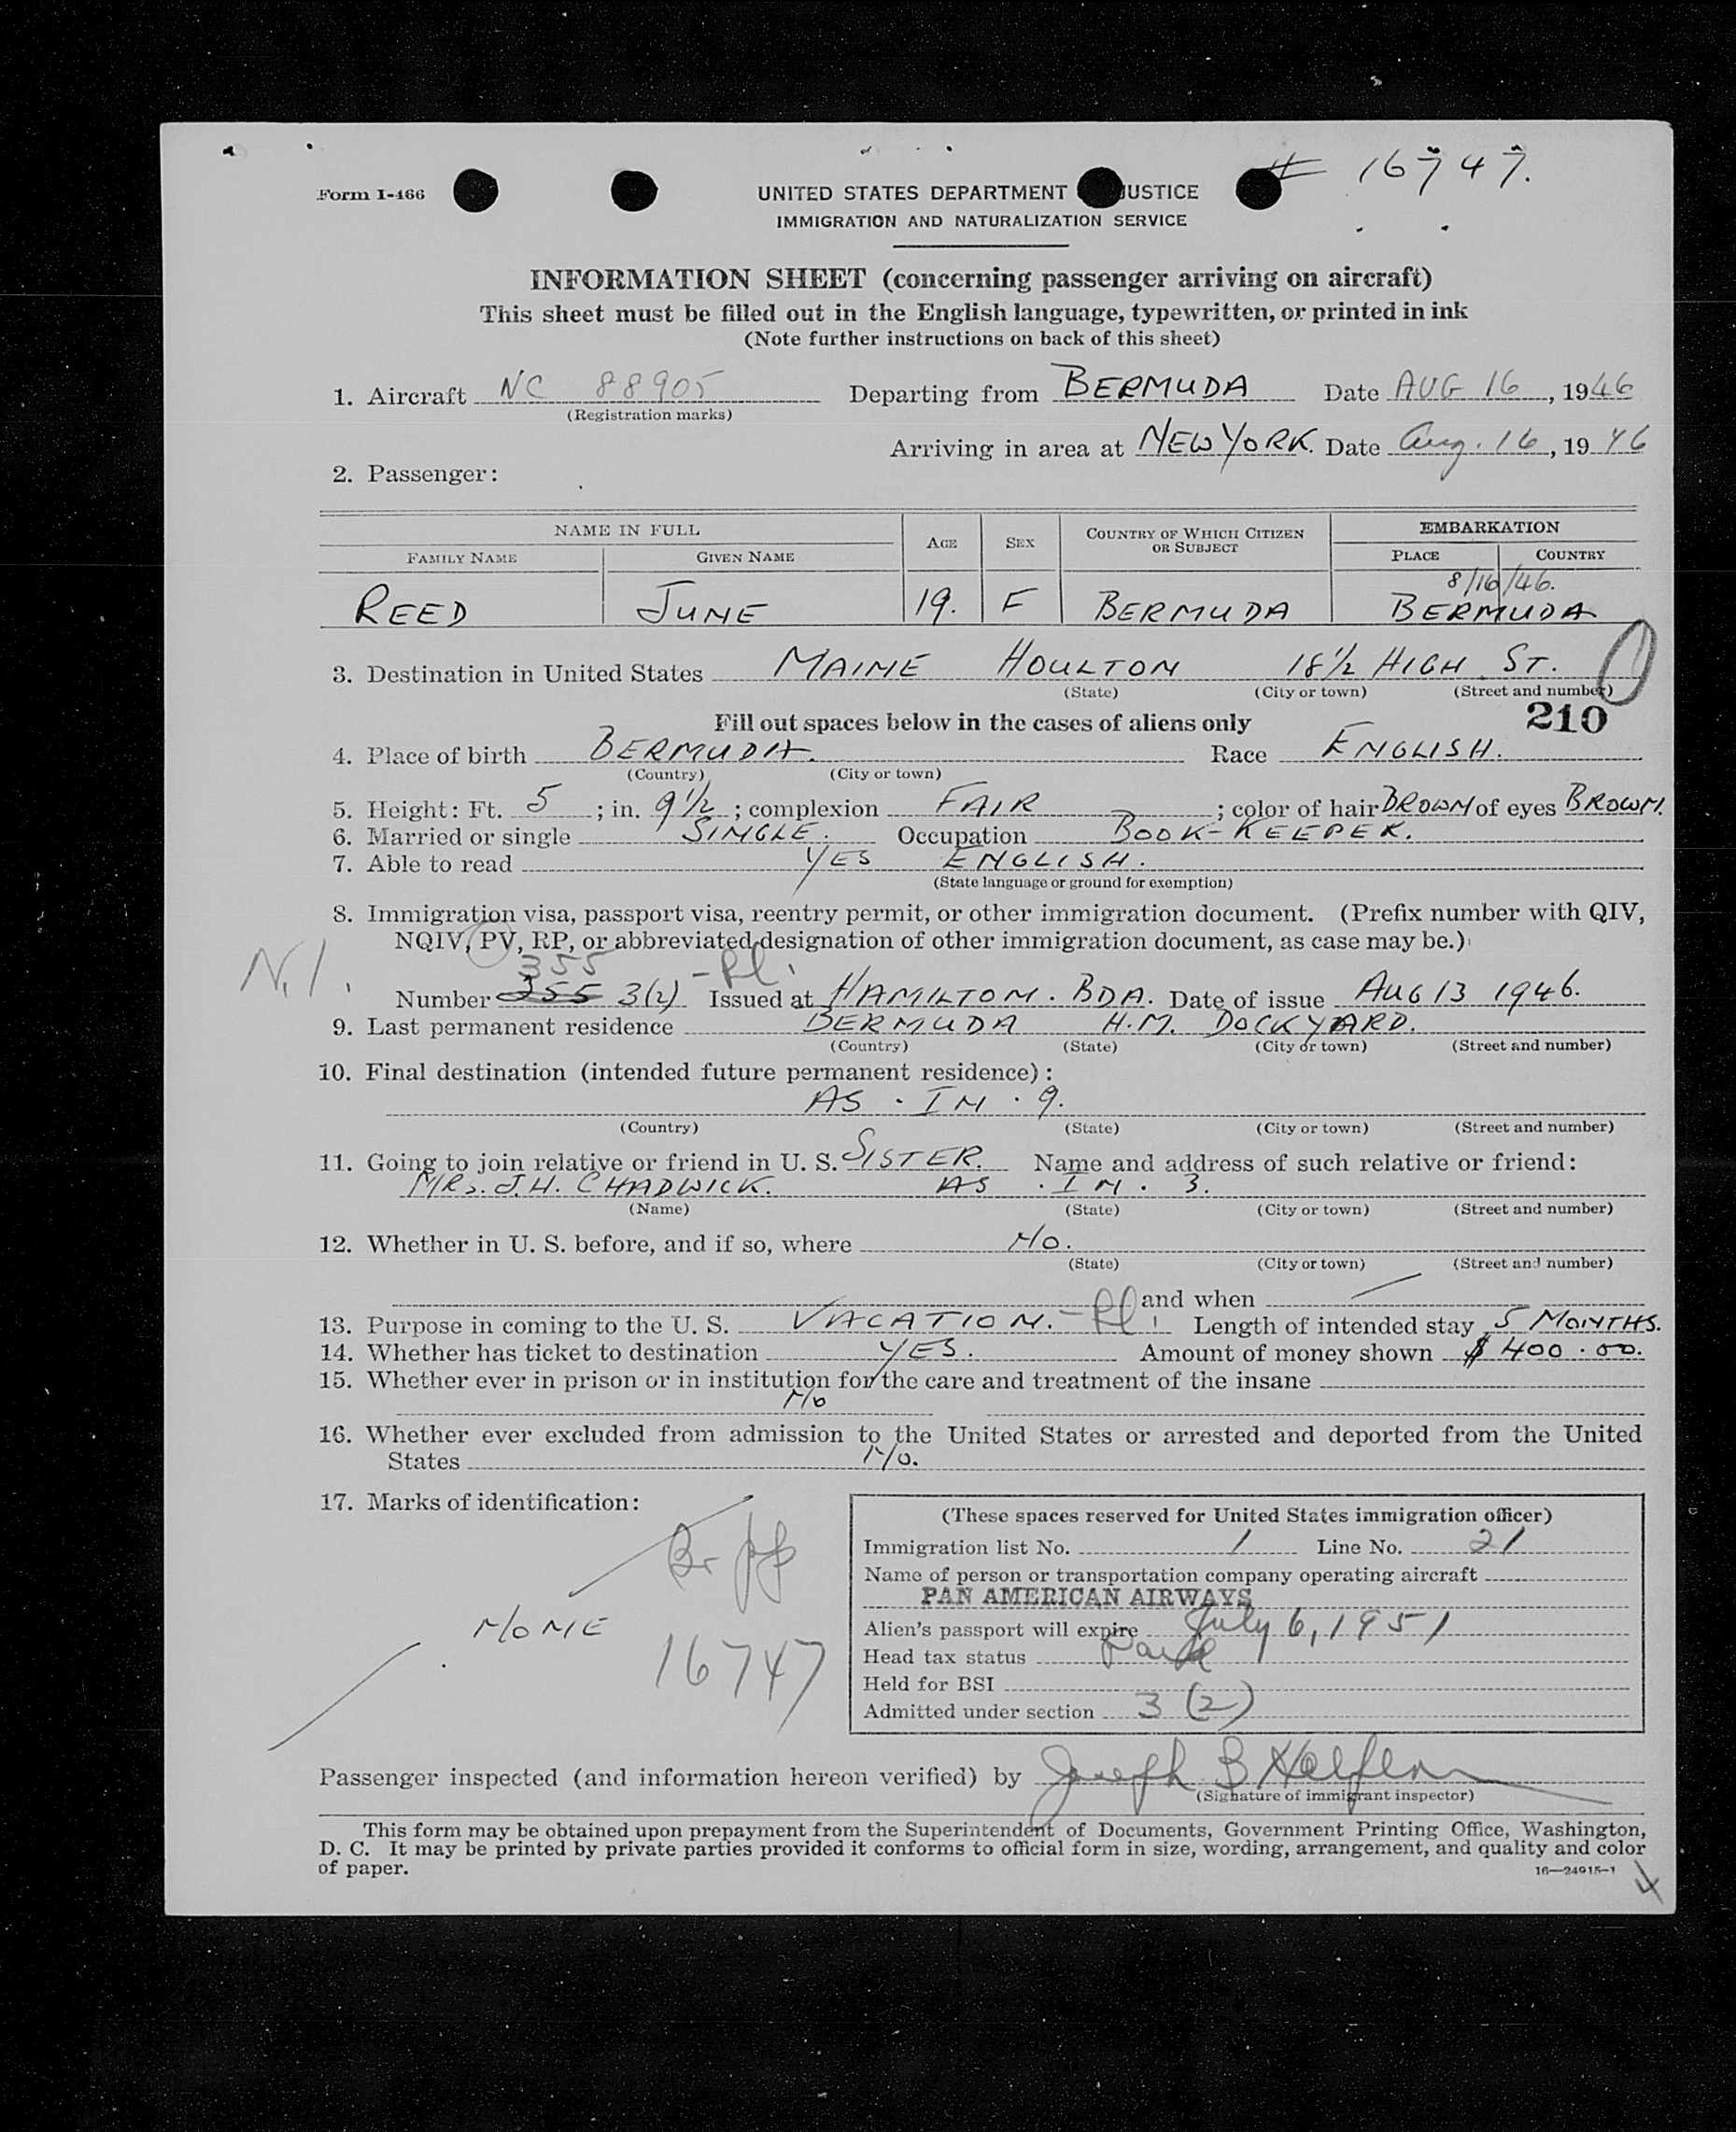 # 16747.
Form I-466
UNITED STATES DEPARTMENT JUSTICE
IMMIGRATION AND NATURALIZATION SERVICE
INFORMATION SHEET (concerning passenger arriving on aircraft)
This sheet must be filled out in the English language, typewritten, or printed in ink
(Note further instructions on back of this sheet)
1. Aircraft NC 88905 Departing from BERMUDA Date AUG 16, 1946
(Registration marks)
Arriving in area at NEW YORK. Date Aug. 16, 1946
2. Passenger:
NAME IN FULL AGE SEX COUNTRY OF WHICH CITIZEN OR SUBJECT EMBARKATION
FAMILY NAME GIVEN NAME PLACE COUNTRY
8/16/46.
REED JUNE 19. F BERMUDA BERMUDA
3. Destination in United States MAINE HOULTON 18½ HIGH ST.
(State) (City or town) (Street and number)
Fill out spaces below in the cases of aliens only 210
4. Place of birth BERMUDA. Race ENGLISH.
(Country) (City or town)
5. Height: Ft. 5; in. 9½; complexion FAIR; color of hair BROWN of eyes BROWN.
6. Married or single SINGLE. Occupation BOOK-KEEPER.
7. Able to read YES ENGLISH.
(State language or ground for exemption)
8. Immigration visa, passport visa, reentry permit, or other immigration document. (Prefix number with QIV,
NQIV, PV, RP, or abbreviated designation of other immigration document, as case may be.)
355
Number 355 3(2) Issued at HAMILTON. BDA. Date of issue AUG 13 1946.
9. Last permanent residence BERMUDA H.M. DOCKYARD.
(Country) (State) (City or town) (Street and number)
10. Final destination (intended future permanent residence):
AS . IN . 9.
(Country) (State) (City or town) (Street and number)
11. Going to join relative or friend in U. S. SISTER. Name and address of such relative or friend:
MRS. J.H. CHADWICK. AS . IN . 3.
(Name) (State) (City or town) (Street and number)
12. Whether in U. S. before, and if so, where NO.
(State) (City or town) (Street and number)
and when
13. Purpose in coming to the U. S. VACATION. Length of intended stay 5 MONTHS.
14. Whether has ticket to destination YES. Amount of money shown $ 400.00.
15. Whether ever in prison or in institution for the care and treatment of the insane
NO
16. Whether ever excluded from admission to the United States or arrested and deported from the United
States NO.
17. Marks of identification:
NONE
16747
(These spaces reserved for United States immigration officer)
Immigration list No. 1 Line No. 21
Name of person or transportation company operating aircraft
PAN AMERICAN AIRWAYS
Alien's passport will expire July 6, 1951
Head tax status Paid
Held for BSI
Admitted under section 3 (2)
Passenger inspected (and information hereon verified) by Joseph B
(Signature of immigrant inspector)
This form may be obtained upon prepayment from the Superintendent of Documents, Government Printing Office, Washington,
D. C. It may be printed by private parties provided it conforms to official form in size, wording, arrangement, and quality and color
of paper. 16—24915-1